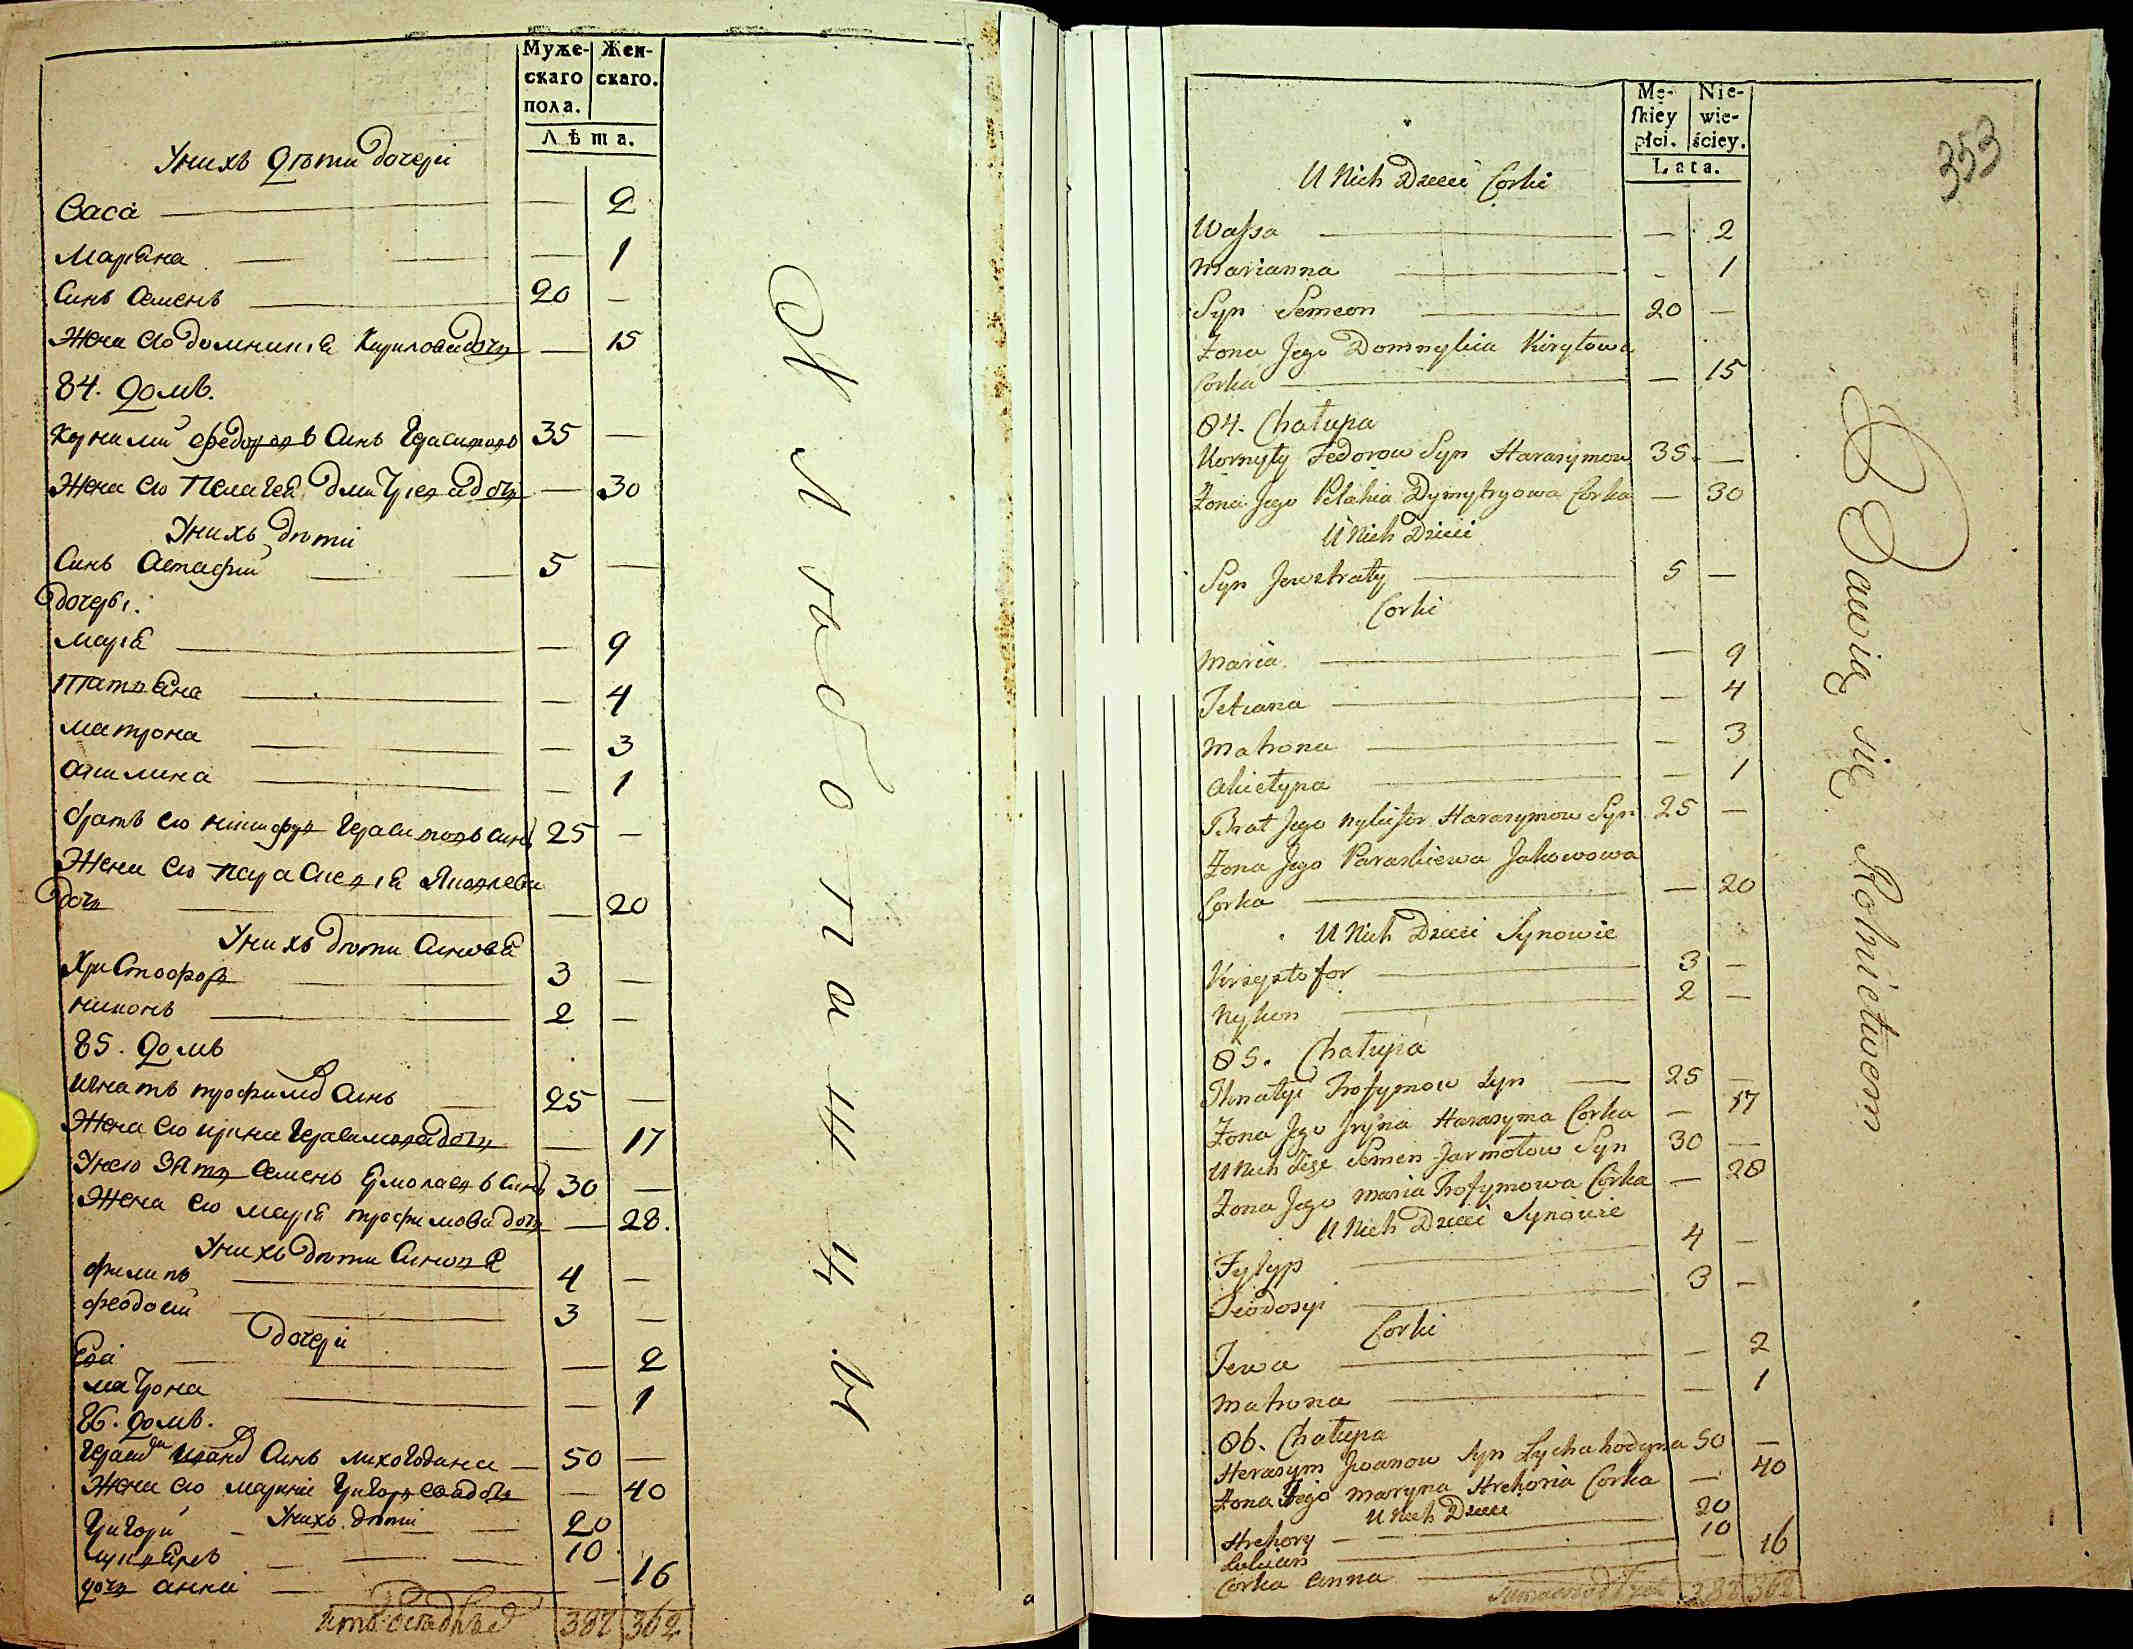 Муже-
скаго
пола.
Жен-
скаго.
Лѣта.
Унихъ Дѣти дочери
Васа — — 2
Мариѧна — — 1
Синъ Семенъ — 20 —
Жена его Домникіѧ Кирилова дочь — 15
84. Домъ.
Корнилий Федоровъ Синъ Герасимовъ 35 —
Жена его Пелагеѧ Дмитріева дочь — 30
Унихъ дѣти
Синъ Астафий — 5 —
Дочери:
Маріѧ — — 9
Татьѧна — — 4
Матрона — — 3
— — 1
братъ его Никифоръ Герасимовъ Синъ 25 —
Жена его Параскевіѧ Яковлева
дочь — — 20
Унихъ дѣти Синовѧ
Христофоръ — 3 —
Никонъ — 2 —
85. Домъ
Игнатъ Трофимовъ Синъ — 25 —
Жена его Ирина Герасимова дочь — 17
Унего Зять Семенъ Ермолаевъ Синъ 30 —
Жена его Маріѧ Трофимова дочь — 28.
Унихъ дѣти Синовѧ
Филипъ — 4 —
Феодосий — 3 —
Дочери
Ева — — 2
Матрона — — 1
86. Домъ.
Герасимъ Ивановъ Синъ Лихогодина — 50 —
Жена его Марина Григорьева дочь — 40
Унихъ дѣти
Григорий — 20
Лукъѧнъ — 10
дочь Анна — — 16
387 362
Хлѣбопашцы
Mę-
skiey
płci.
Nie-
wie-
ściey.
Lata.
353
U Nich Dzieci Corki
Wassa — — 2
Marianna — — 1
Syn Semeon — 20 —
Zona Jego Domnykia Kiryłowa
Corka — — 15
84. Chałupa
Kornyły Fedorow Syn Harasymow 35. —
Zona Jego Pelahia Dymytryowa Corka — 30
U Nich Dzieci
Syn Jewstraty — 5 —
Corki
Maria. — — 9
Tetiana — — 4
Matrona — — 3
— — 1
Brat Jego Nykifor Harasymow Syn 25 —
Zona Jego Paraskiewa Jakowowa
Corka — — 20
U Nich Dzieci Synowie
Krzysztofor — 3 —
Nykon — 2 —
85. Chałupa
Ihnatyi Trofymow Syn — 25 —
Zona Jego Iryna Harasyma Corka — 17
U Nich Semen Jarmołow Syn 30 —
Zona Jego Maria Trofymowa Corka — 28
U Nich Dzieci Synowie
Fyłyp — 4 —
Teodosyi — 3 —
Corki
Jewa — — 2
Matrona — — 1
86. Chałupa
Herasym Iwanow Syn Lychahodyna 50 —
Zona Jego Maryna Hrehoria Corka — 40
U Nich Dzieci
Hrehory — 20
Łukian — 10
Corka Anna — — 16
Bawią się Rolnictwem